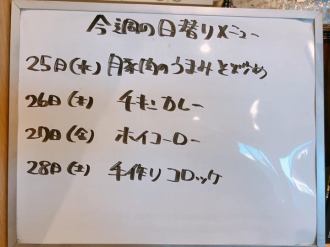 今週の日替りメニュー
25日(水) 豚肉のうまみそ炒め
26日(木) チキンカレー
27日(金) ホイコーロー
28日(土) 手作りコロッケ